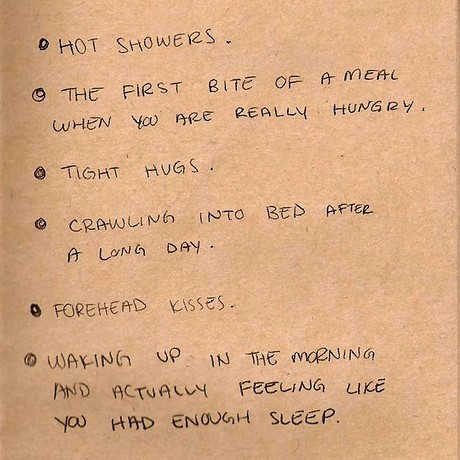 HOT SHOWERS.
THE FIRST BITE OF A MEAL
WHEN YOU ARE REALLY HUNGRY.
TIGHT HUGS.
CRAWLING INTO BED AFTER
A LONG DAY.
FOREHEAD KISSES.
WAKING UP IN THE MORNING
AND ACTUALLY FEELING LIKE
YOU HAD ENOUGH SLEEP.